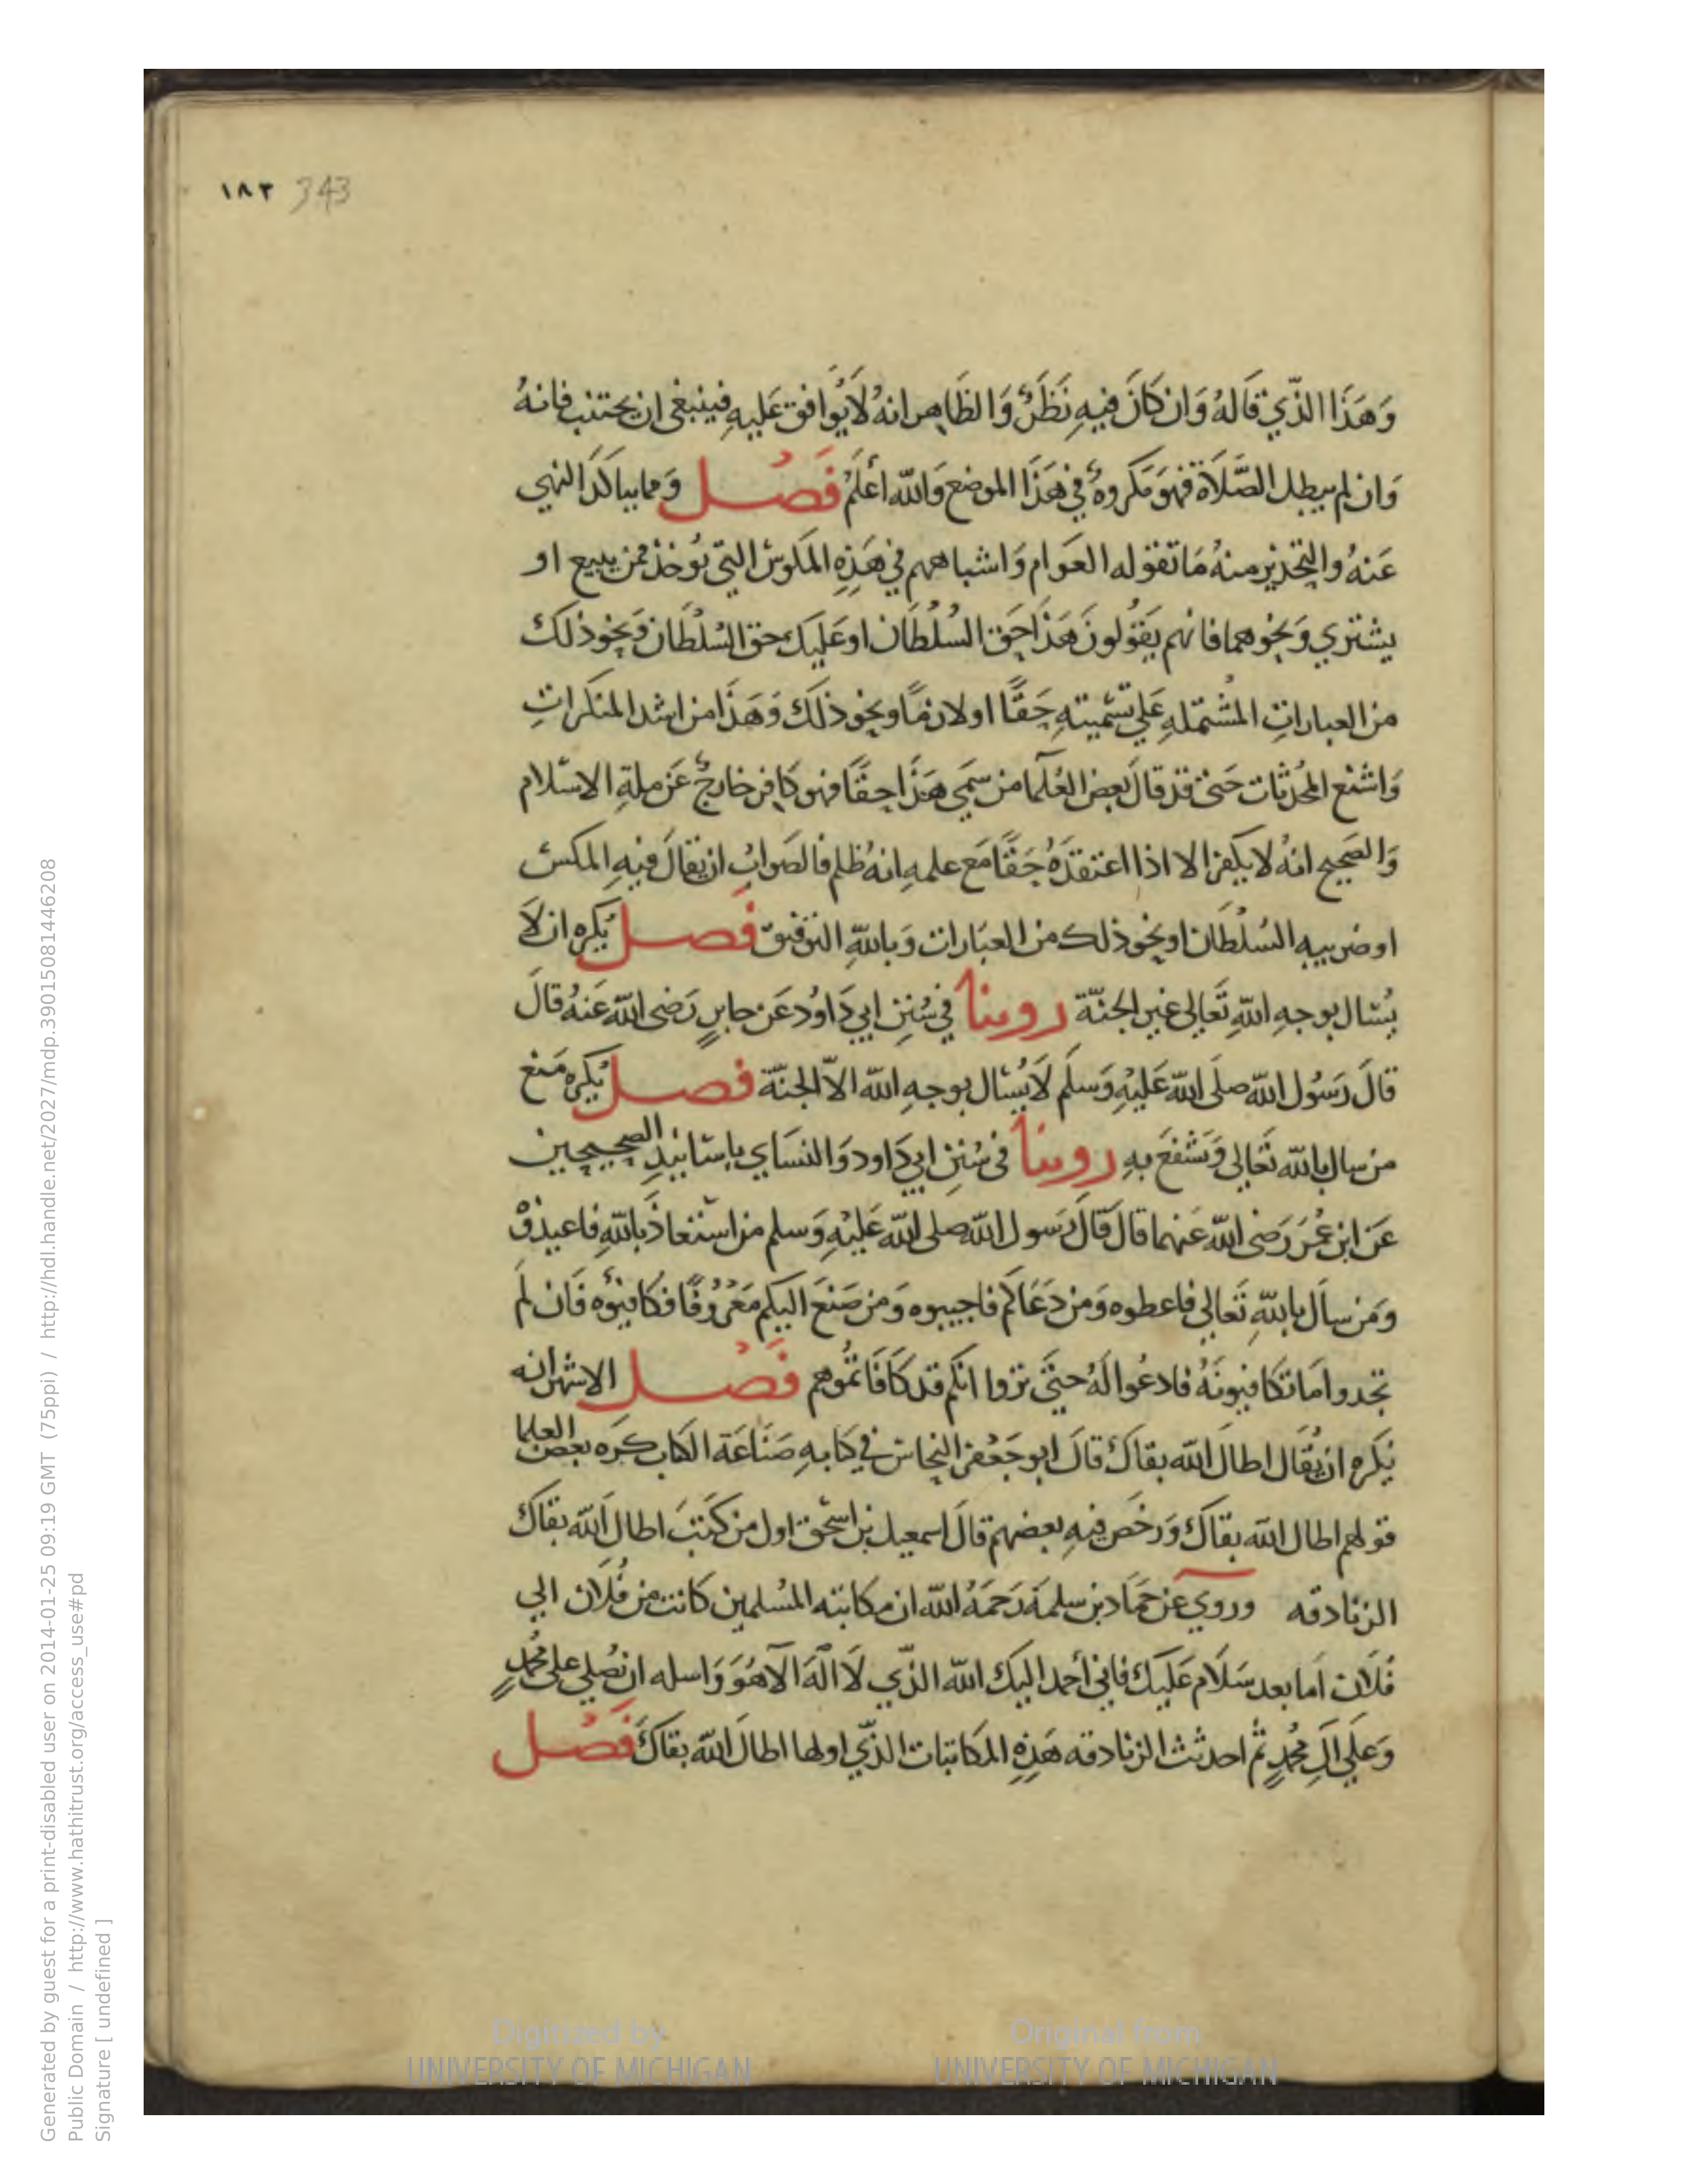 ١٨٣ 343
وَهَذَا الذّي قَالَهُ وَان كَانَ فيهِ نَظَرٌ وَالظَاهِر انهُ لَا يُوَافق عَليهِ فينبغي ان يجتنب فانهُ
وَان لم يبطل الصَّلَاة فهوَ مَكروهٌ في هَذَا الموضع وَالله أعلَمُ فَصْل وَمما يتاكدَ النهي
عَنهُ والتحذير منهُ مَا تقوله العَوَام وَاشباههم في هَذِهِ المكوس التي تُوخذ ممن يبيع او
يشتري وَنحُوهما فانهم يَقوُلونَ هَذَا حَق السُلْطَان او عَليك حق السُلْطَان وَنحو ذلك
من العبارات المُشتمله عَلي تسْميتهِ حَقًّا او لازمًا ونحو ذلك وَهَذَا من اشد المنكراتِ
وَاشنع المُحدثات حَتى قد قالَ بَعض العُلَما من سَمي هَذَا حقًا فهو كافر خارجٌ عَن ملةِ الاسْلام
وَالصَحيح انهُ لا يكفر الا اذا اعتقدَهُ حَقًا مَع علمهِ انهُ ظلم فالصَوابُ ان يقالَ فيهِ المكس
او ضريبه السُلْطَان او نحو ذلك من العبَارات وَبالله التوفيق فَصل يُكره ان لَا
يُسْال بوجهِ اللهِ تَعالى غير الجنّة روينا في سُنن ابي دَاوُد عَن جابرٍ رَضى الله عَنهُ قالَ
قالَ رَسُول الله صلَى الله عَليْهِ وَسلم لَا يُسْال بوجهِ الله الاّ الجنّة فصل يُكره مَنع
من سال بالله تَعَالى وَتشفعَ بهِ روينا في سُنن ابي دَاود وَالنسَاي باسَانيدِ الصحيحين
عَن ابن عُمَرَ رَضى الله عَنهما قالَ قالَ رَسول الله صلى الله عَليْهِ وَسلم من اسْتعاذَ بالله فاعيذوْ
وَمَن سأل بالله تَعالي فاعطوه وَمن دَعَاكم فاجيبوه وَمن صَنعَ اليكم مَعْرُوفًا فكافئوه فَان لَم
تجدوا مَا تكافيونَهُ فادعُوا لَهُ حتىَّ تروا انكم قد كَافَاتمُوهم فَصْل الاشهر انه
يُكره ان يُقَال اطالَ الله بقاكَ قالَ ابو جَعْفر النحاس في كتابهِ صَنَاعَة الكتاب كرَه بعض العلما
قولهم اطال الله بقاكَ وَرَخصَ فيهِ بعضهم قالَ اسمعيل بن اسْحق اول من كتبَ اطال اَلله بقاكَ
الزنادقه وروي عن حَمَاد بن سلمة رَحمَهُ الله ان مكاتبه المُسْلمين كانت من فُلان الي
فُلَان اما بعد سَلَام عَليكَ فاني أحمد اليك الله الذّي لَا الَه الّا هُوَ وَاسله ان يُصلي على مُحمدٍ
وَعَلي الِ مُحمدٍ ثم احدثت الزنادقه هَذِهِ المكاتبات الذّي اولها اطالَ الله بقاكَ فَصْل
Generated by guest for a print-disabled user on 2014-01-25 09:19 GMT (75ppi) / http://hdl.handle.net/2027/mdp.39015081446208
Public Domain / http://www.hathitrust.org/access_use#pd
Signature [ undefined ]
Digitized by UNIVERSITY OF MICHIGAN
Original from UNIVERSITY OF MICHIGAN